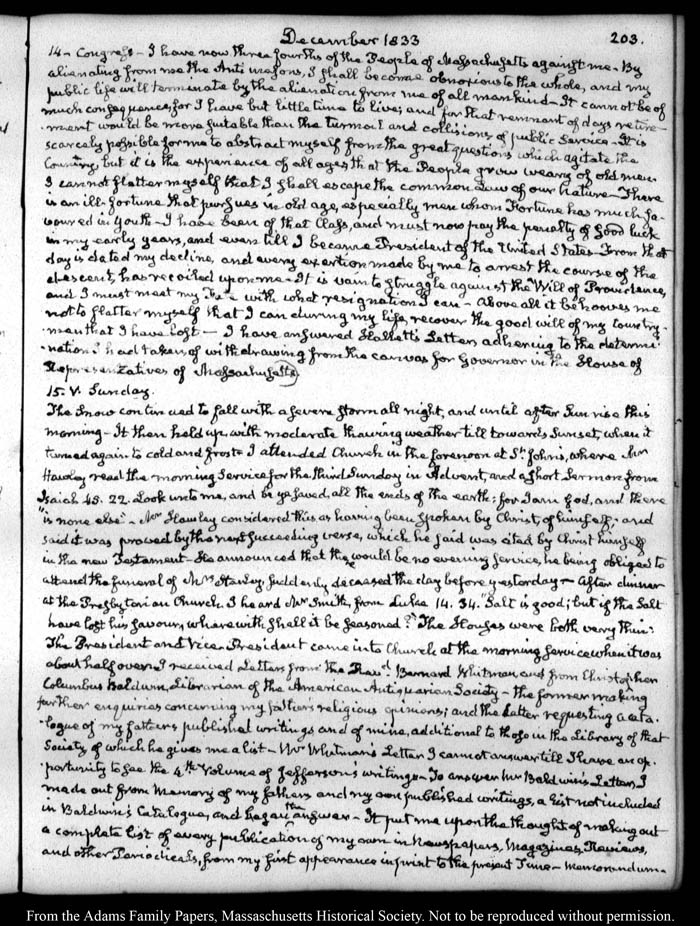 December 1833
203.
14- Congress- I have now three fourths of the People of Massachusetts against me- By
alienating from me the Anti masons, I shall become obnoxious to the whole, and my
public life will terminate by the alienation from me of all mankind- It cannot be of
much consequence, for I have but little time to live; and for that remnant of days retire-
-ment would be more suitable than the turmoil and collisions of public Service- It is
scarcely possible for me to abstract myself from the great questions which agitate the
Country, but it is the experience of all ages that the People grow weary of old men-
I cannot flatter myself that I shall escape the common Law of our Nature- There
is an ill-fortune that pursues in old age, especially men whom Fortune has much fa-
-voured in Youth- I have been of that Class, and must now pay the penalty of good luck
in my early years, and even till I became President of the United States- From that
day is dated my decline, and every exertion made by me to arrest the course of the
descent, has recoiled upon me- It is vain to struggle against the Will of Providence,
and I must meet my Fate with what resignation I can- Above all it behooves me
not to flatter myself that I can during my life, recover the good will of my Country-
-men that I have lost- I have answered Hallett's Letter, adhering to the determi-
-nation I had taken of withdrawing from the canvas for Governor in the House of
Representatives of Massachusetts
15. V. Sunday.
The Snow continued to fall with a severe storm all night, and until after Sun rise this
morning- It then held up with moderate thawing weather till towards Sunset, when it
turned again to cold and frost- I attended Church in the forenoon at St. John's, where Mr
Hawley read the morning Service for the third Sunday in Advent, and a short Sermon from
Isaiah 45. 22. Look unto me, and be ye saved, all the ends of the earth: for I am God, and there
"is none else"- Mr Hawley considered this as having been spoken by Christ, of himself; and
said it was proved by the next succeeding verse, which he said was cited by Christ himself
in the new Testament- He announced that there would be no evening service, he being obliged to
attend the funeral of Mrs Hanley suddenly deceased the day before yesterday- After dinner
at the Presbyterian Church I heard Mr Smith, from Luke 14. 34. "Salt is good; but if the Salt
have lost his savour, wherewith shall it be seasoned?" The Houses were both very thin.
The President and Vice-President came into Church at the morning service when it was
about half over- I received Letters from the Revd. Bernard Whitman, and from Christopher
Columbus Baldwin, Librarian of the American Antiquarian Society- the former making
further enquiries concerning my father's religious opinions; and the latter requesting a cata-
-logue of my father's published writings and of mine, additional to those in the Library of that
Society, of which he gives me a list- Mr Whitman's Letter I cannot answer till I have an op-
-portunity to see the 4th Volume of Jefferson's writings- To answer Mr Baldwin's Letter, I
made out from Memory of my father's and my own published writings, a list not included
in Baldwin's Catalogue, and began the answer- It put me upon the thought of making out
a complete list of every publication of my own in Newspapers, Magazines, Reviews,
and other Periodicals, from my first appearance in print to the present Time- Memorandum-
From the Adams Family Papers, Massachusetts Historical Society. Not to be reproduced without permission.